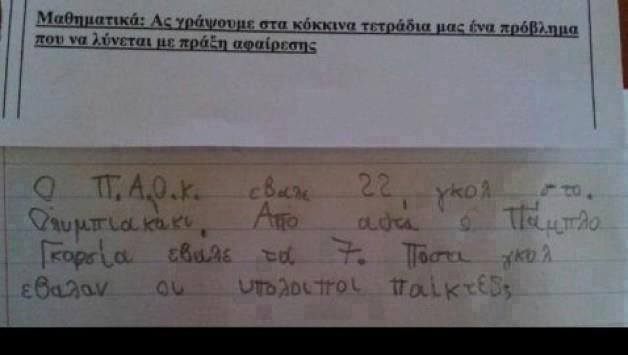 Μαθηματικά: Ας γράψουμε στα κόκκινα τετράδια μας ένα πρόβλημα
που να λύνεται με πράξη αφαίρεσης
Ο Π.Α.Ο.Κ. εβαλε 22 γκολ στο.
Ολυμπιακάκι. Από αυτά ο Πάμπλο
Γκαρσία εβαλε τα 7. Ποσα γκολ
εβαλαν οι υπολοιποι παίκτες;